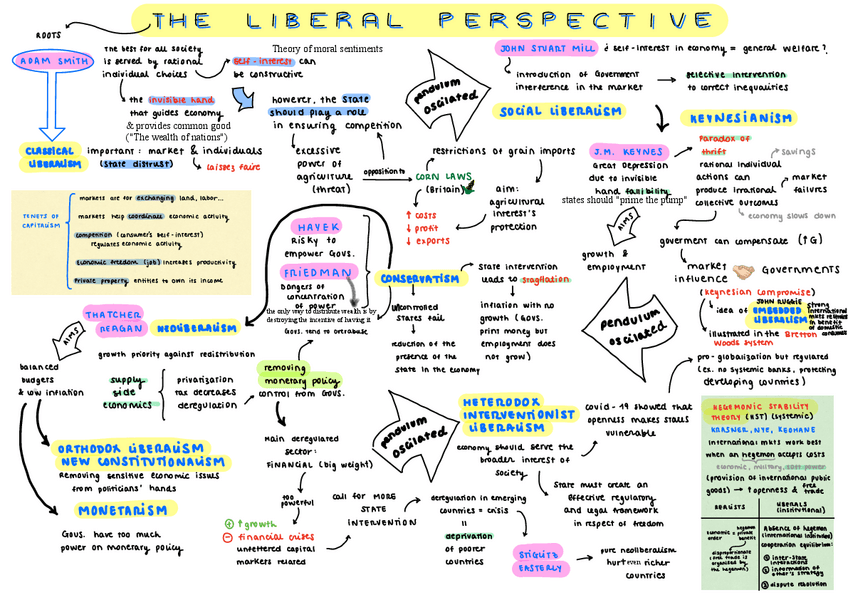 THE LIBERAL PERSPECTIVE
ROOTS
ADAM SMITH
The best for all society
is served by rational
individual choices
Theory of moral sentiments
self-interest can
be constructive
the invisible hand
that guides economy
& provides common good
("The wealth of nations")
however, the state
should play a role
in ensuring competition
CLASSICAL
LIBERALISM
important: market & individuals
(state distrust)
laissez faire
excessive
power of
agriculture
(threat)
opposition to
CORN LAWS
(Britain)
restrictions of grain imports
aim:
agricultural
interest's
protection
↑ costs
↓ profit
↓ exports
pendulum
oscilated
JOHN STUART MILL
¿ self-interest in economy = general welfare?
introduction of Government
interference in the market
selective intervention
to correct inequalities
SOCIAL LIBERALISM
KEYNESIANISM
J.M. KEYNES
Great Depression
due to invisible
hand fallibility
states should "prime the pump"
Paradox of
thrift
rational individual
actions can
produce irrational
collective outcomes
savings
market
failures
economy slows down
AIMS
growth &
employment
goverment can compensate (↑G)
market
influence
Governments
(Keynesian compromise)
idea of EMBEDDED
LIBERALISM
JOHN RUGGIE
illustrated in the Bretton
Woods system
pro-globalization but regulated
(ex. no systemic banks, protecting
developing countries)
TENETS OF
CAPITALISM
markets are for exchanging land, labor...
markets help coordinate economic activity
competition (consumer's self-interest)
regulates economic activity
economic freedom (job) increases productivity
private property entities to own its income
HAYEK
Risky to
empower Govs.
FRIEDMAN
Dangers of
concentration
of power
the only way to distribute wealth is by
destroying the incentive of having it
Govs. tend to overabuse
CONSERVATISM
state intervention
leads to stagflation
inflation with no
growth (Govs.
print money but
employment does
not grow)
uncontrolled
states fail
reduction of the
presence of the
state in the economy
pendulum
oscilated
THATCHER
REAGAN
NEOLIBERALISM
AIMS
growth priority against redistribution
balanced
budgets
& low inflation
supply
side
economics
privatization
tax decreases
deregulation
removing
monetary policy
control from Govs.
ORTHODOX LIBERALISM
NEW CONSTITUTIONALISM
Removing sensitive economic issues
from politicians' hands
MONETARISM
Govs. have too much
power on monetary policy
main deregulated
sector:
FINANCIAL (big weight)
too
powerful
+ ↑ growth
- financial crises
unfettered capital
markets related
call for MORE
STATE
INTERVENTION
pendulum
oscilated
HETERODOX
INTERVENTIONIST
LIBERALISM
economy should serve the
broader interest of
society
covid-19 showed that
openness makes states
vulnerable
State must create an
effective regulatory
and legal framework
in respect of freedom
deregulation in emerging
countries = crisis
=
deprivation
of poorer
countries
STIGLITZ
EASTERLY
pure neoliberalism
hurt even richer
countries
HEGEMONIC STABILITY
THEORY (HST) (systemic)
KRASNER, NYE, KEOHANE
International mkts work best
when an hegemon accepts costs
economic, military, soft power
(provision of international public
goods) → ↑ openness & free
trade
REALISTS
LIBERALS
(institutional)
Absence of hegemon
(International institutions)
cooperation equilibrium:
① inter-state
interactions
② information of
other's strategy
③ dispute resolution